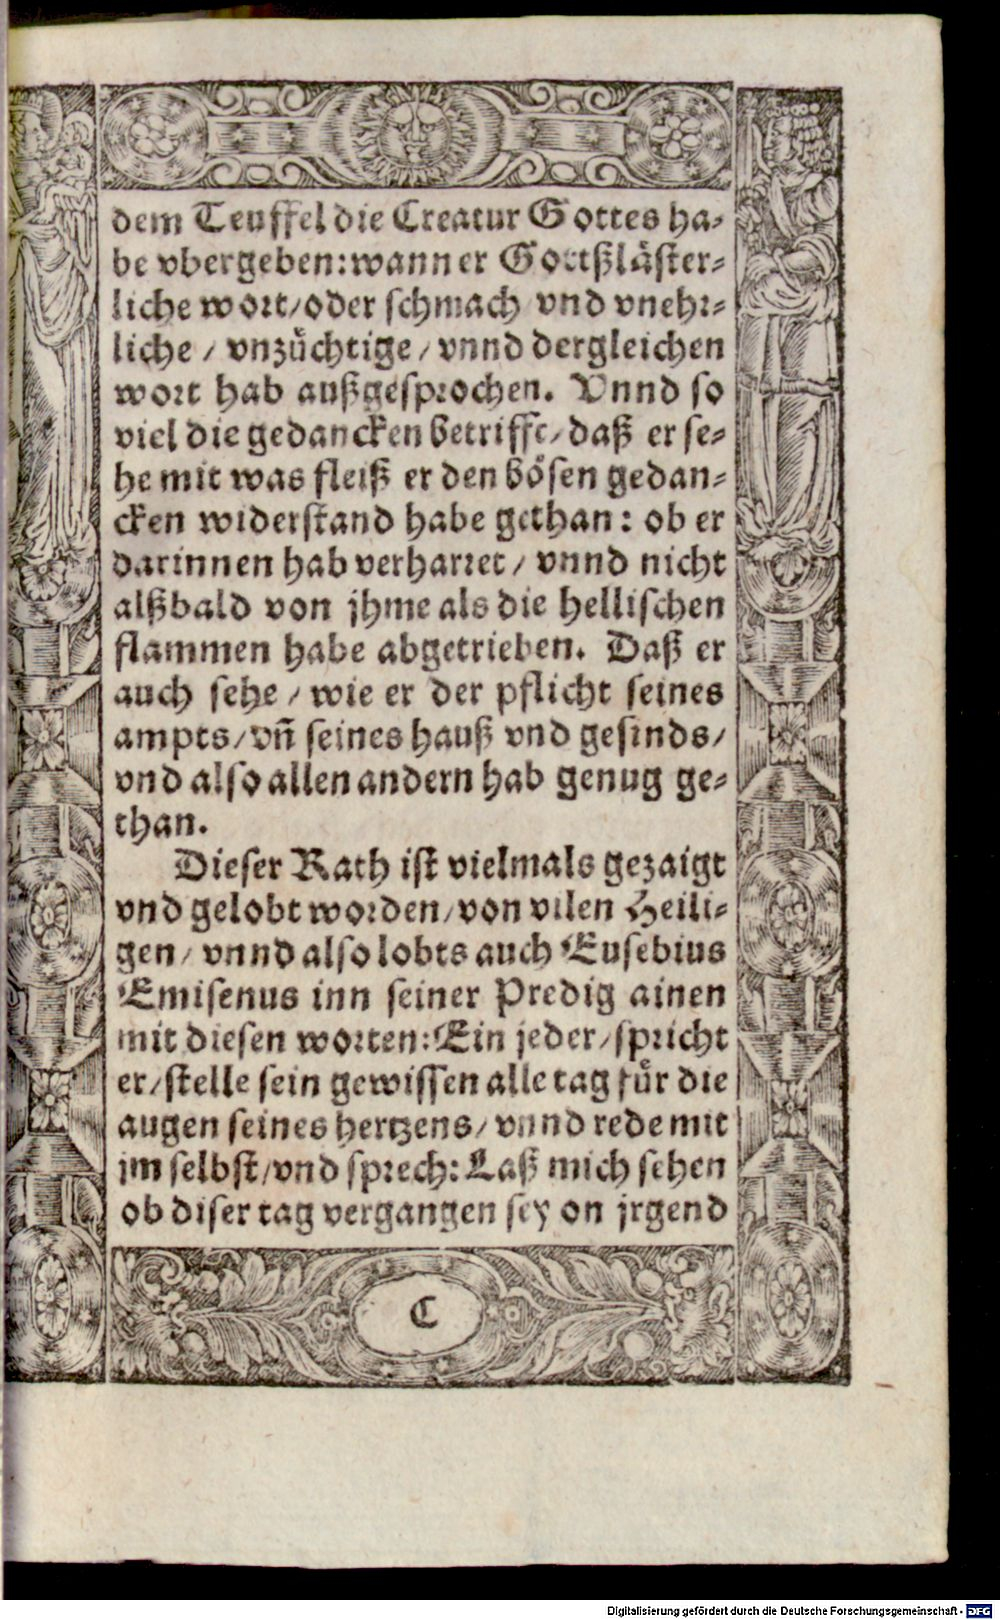 dem Teuffel die Creatur Gottes ha-
be vbergeben: wann er Gottßläster-
liche wort/ oder schmach vnd vnehr-
liche / vnzüchtige / vnnd dergleichen
wort hab außgesprochen. Vnnd so
viel die gedancken betrifft/ daß er se-
he mit was fleiß er den bösen gedan-
cken widerstand habe gethan: ob er
darinnen hab verharret / vnnd nicht
alßbald von jhme als die hellischen
flammen habe abgetrieben. Daß er
auch sehe / wie er der pflicht seines
ampts/ vñ seines hauß vnd gesinds/
vnd also allen andern hab genug ge-
than.
Dieser Rath ist vielmals gezaigt
vnd gelobt worden/ von vilen Heili-
gen/ vnnd also lobts auch Eusebius
Emisenus inn seiner Predig ainen
mit diesen worten: Ein jeder/ spricht
er/ stelle sein gewissen alle tag für die
augen seines hertzens/ vnnd rede mit
jm selbst/ vnd sprech: Laß mich sehen
ob diser tag vergangen sey on jrgend
C
Digitalisierung gefördert durch die Deutsche Forschungsgemeinschaft - DFG